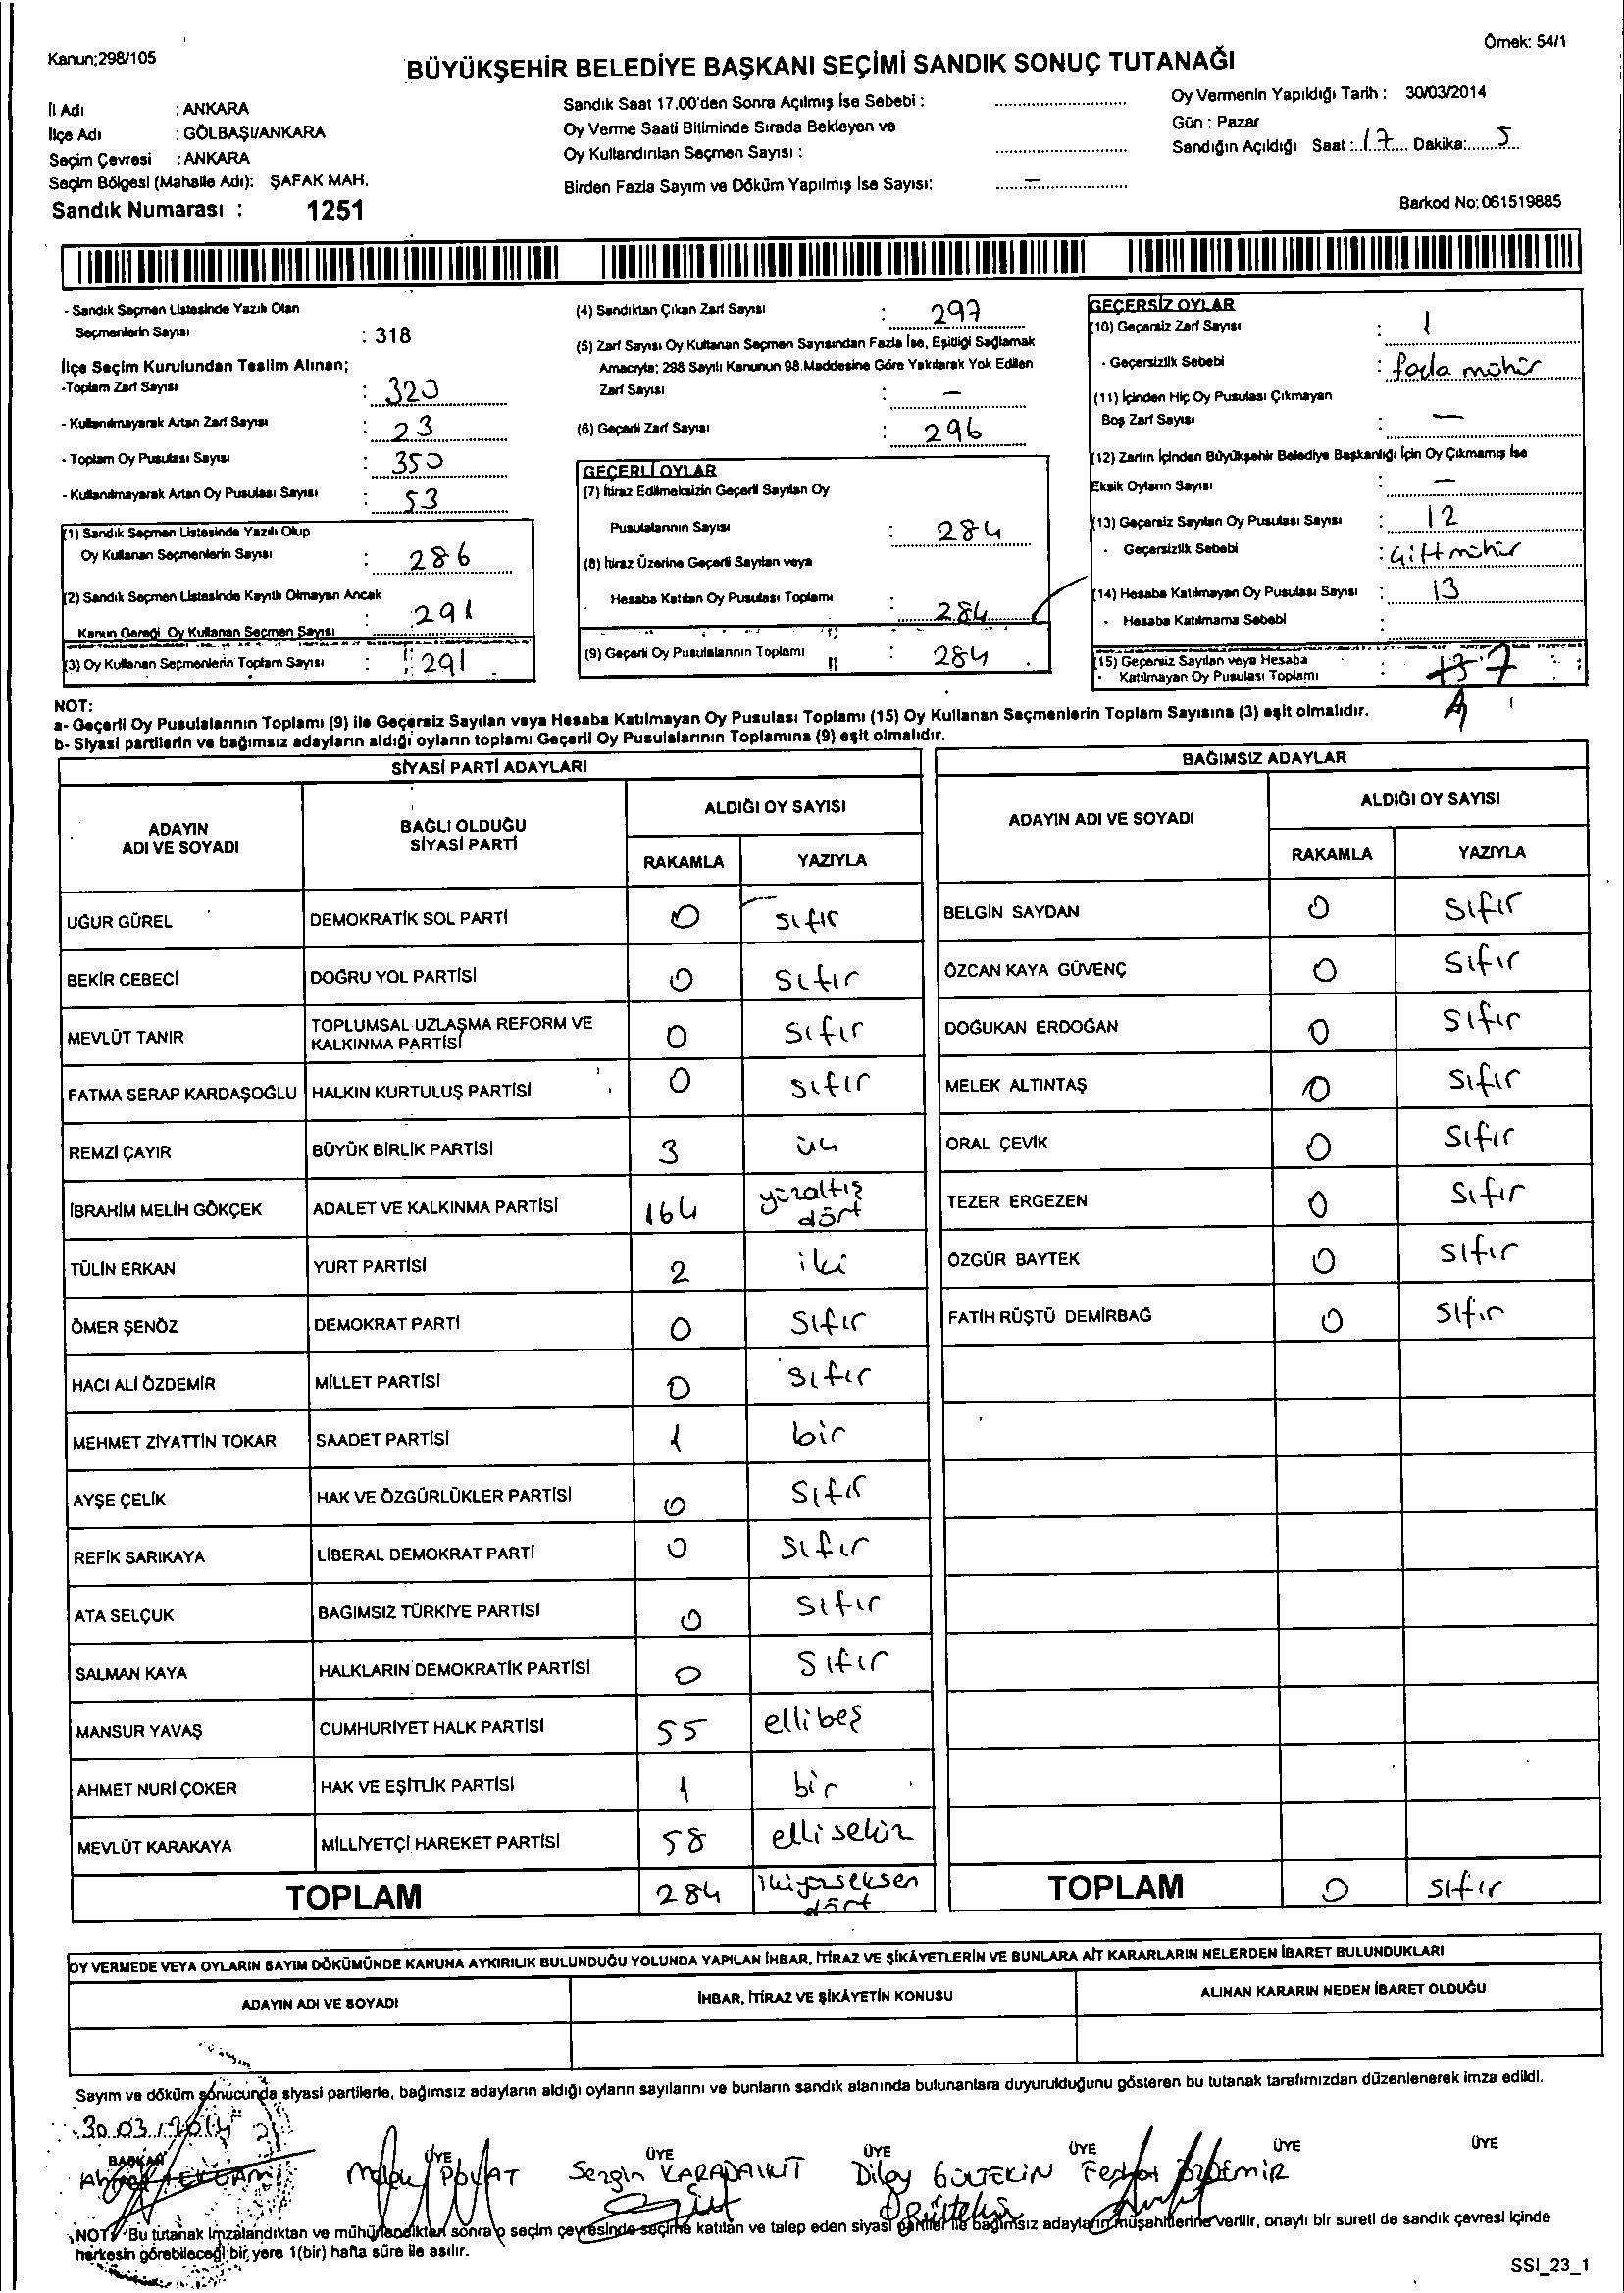 Kanun;298/105
Örnek: 54/1
BÜYÜKŞEHİR BELEDİYE BAŞKANI SEÇİMİ SANDIK SONUÇ TUTANAĞI
İl Adı : ANKARA
İlçe Adı : GÖLBAŞI/ANKARA
Seçim Çevresi : ANKARA
Seçim Bölgesi (Mahalle Adı): ŞAFAK MAH.
Sandık Numarası : 1251
Sandık Saat 17.00'den Sonra Açılmış İse Sebebi :
Oy Verme Saati Bitiminde Sırada Bekleyen ve
Oy Kullandırılan Seçmen Sayısı :
Birden Fazla Sayım ve Döküm Yapılmış İse Sayısı: –
Oy Vermenin Yapıldığı Tarih : 30/03/2014
Gün : Pazar
Sandığın Açıldığı Saat : 17 Dakika: 5
Barkod No: 061519885
- Sandık Seçmen Listesinde Yazılı Olan
Seçmenlerin Sayısı : 318
İlçe Seçim Kurulundan Teslim Alınan;
-Toplam Zarf Sayısı : 320
- Kullanılmayarak Artan Zarf Sayısı : 23
- Toplam Oy Pusulası Sayısı : 350
- Kullanılmayarak Artan Oy Pusulası Sayısı : 53
(1) Sandık Seçmen Listesinde Yazılı Olup
Oy Kullanan Seçmenlerin Sayısı : 286
(2) Sandık Seçmen Listesinde Kayıtlı Olmayan Ancak
Kanun Gereği Oy Kullanan Seçmen Sayısı : 291
(3) Oy Kullanan Seçmenlerin Toplam Sayısı : 291
(4) Sandıktan Çıkan Zarf Sayısı : 297
(5) Zarf Sayısı Oy Kullanan Seçmen Sayısından Fazla İse, Eşitliği Sağlamak
Amacıyla; 298 Sayılı Kanunun 98.Maddesine Göre Yakılarak Yok Edilen
Zarf Sayısı : –
(6) Geçerli Zarf Sayısı : 296
GEÇERLİ OYLAR
(7) İtiraz Edilmeksizin Geçerli Sayılan Oy
Pusulalarının Sayısı : 284
(8) İtiraz Üzerine Geçerli Sayılan veya
Hesaba Katılan Oy Pusulası Toplamı : 284
(9) Geçerli Oy Pusulalarının Toplamı : 284
GEÇERSİZ OYLAR
(10) Geçersiz Zarf Sayısı : 1
- Geçersizlik Sebebi : fazla mühür
(11) İçinden Hiç Oy Pusulası Çıkmayan
Boş Zarf Sayısı : –
(12) Zarfın İçinden Büyükşehir Belediye Başkanlığı İçin Oy Çıkmamış İse
Eksik Oyların Sayısı : –
(13) Geçersiz Sayılan Oy Pusulası Sayısı : 12
- Geçersizlik Sebebi : Çift mühür
(14) Hesaba Katılmayan Oy Pusulası Sayısı : 13
- Hesaba Katılmama Sebebi :
(15) Geçersiz Sayılan veya Hesaba
Katılmayan Oy Pusulası Toplamı : 7
NOT:
a- Geçerli Oy Pusulalarının Toplamı (9) ile Geçersiz Sayılan veya Hesaba Katılmayan Oy Pusulası Toplamı (15) Oy Kullanan Seçmenlerin Toplam Sayısına (3) eşit olmalıdır.
b- Siyasi partilerin ve bağımsız adayların aldığı oyların toplamı Geçerli Oy Pusulalarının Toplamına (9) eşit olmalıdır.
SİYASİ PARTİ ADAYLARI
ADAYIN ADI VE SOYADI BAĞLI OLDUĞU SİYASİ PARTİ ALDIĞI OY SAYISI
RAKAMLA YAZIYLA
UĞUR GÜREL DEMOKRATİK SOL PARTİ 0 sıfır
BEKİR CEBECİ DOĞRU YOL PARTİSİ 0 sıfır
MEVLÜT TANIR TOPLUMSAL UZLAŞMA REFORM VE KALKINMA PARTİSİ 0 sıfır
FATMA SERAP KARDAŞOĞLU HALKIN KURTULUŞ PARTİSİ 0 sıfır
REMZİ ÇAYIR BÜYÜK BİRLİK PARTİSİ 3 üç
İBRAHİM MELİH GÖKÇEK ADALET VE KALKINMA PARTİSİ 164 yüzaltış dört
TÜLİN ERKAN YURT PARTİSİ 2 iki
ÖMER ŞENÖZ DEMOKRAT PARTİ 0 sıfır
HACI ALİ ÖZDEMİR MİLLET PARTİSİ 0 sıfır
MEHMET ZİYATTİN TOKAR SAADET PARTİSİ 1 bir
AYŞE ÇELİK HAK VE ÖZGÜRLÜKLER PARTİSİ 0 sıfır
REFİK SARIKAYA LİBERAL DEMOKRAT PARTİ 0 sıfır
ATA SELÇUK BAĞIMSIZ TÜRKİYE PARTİSİ 0 sıfır
SALMAN KAYA HALKLARIN DEMOKRATİK PARTİSİ 0 sıfır
MANSUR YAVAŞ CUMHURİYET HALK PARTİSİ 55 ellibeş
AHMET NURİ ÇOKER HAK VE EŞİTLİK PARTİSİ 1 bir
MEVLÜT KARAKAYA MİLLİYETÇİ HAREKET PARTİSİ 58 ellisekiz
TOPLAM 284 ikiyüzseksen dört
BAĞIMSIZ ADAYLAR
ADAYIN ADI VE SOYADI ALDIĞI OY SAYISI
RAKAMLA YAZIYLA
BELGİN SAYDAN 0 sıfır
ÖZCAN KAYA GÜVENÇ 0 sıfır
DOĞUKAN ERDOĞAN 0 sıfır
MELEK ALTINTAŞ 0 sıfır
ORAL ÇEVİK 0 sıfır
TEZER ERGEZEN 0 sıfır
ÖZGÜR BAYTEK 0 sıfır
FATİH RÜŞTÜ DEMİRBAĞ 0 sıfır
TOPLAM 0 sıfır
OY VERMEDE VEYA OYLARIN SAYIM DÖKÜMÜNDE KANUNA AYKIRILIK BULUNDUĞU YOLUNDA YAPILAN İHBAR, İTİRAZ VE ŞİKÂYETLERİN VE BUNLARA AİT KARARLARIN NELERDEN İBARET BULUNDUKLARI
ADAYIN ADI VE SOYADI İHBAR, İTİRAZ VE ŞİKÂYETİN KONUSU ALINAN KARARIN NEDEN İBARET OLDUĞU
Sayım ve döküm sonucunda siyasi partilerle, bağımsız adayların aldığı oyların sayılarını ve bunların sandık alanında bulunanlara duyurulduğunu gösteren bu tutanak tarafımızdan düzenlenerek imza edildi.
30.03.2014
BAŞKAN ÜYE ÜYE ÜYE ÜYE ÜYE ÜYE
POLAT Sezgin Dilay GÜLTEKİN ÖZDEMİR
NOT: Bu tutanak imzalandıktan ve mühürlendikten sonra o seçim çevresinde seçime katılan ve talep eden siyasi partiler ile bağımsız adayların müşahitlerine verilir, onaylı bir sureti de sandık çevresi içinde
herkesin görebileceği bir yere 1(bir) hafta süre ile asılır.
SSI_23_1